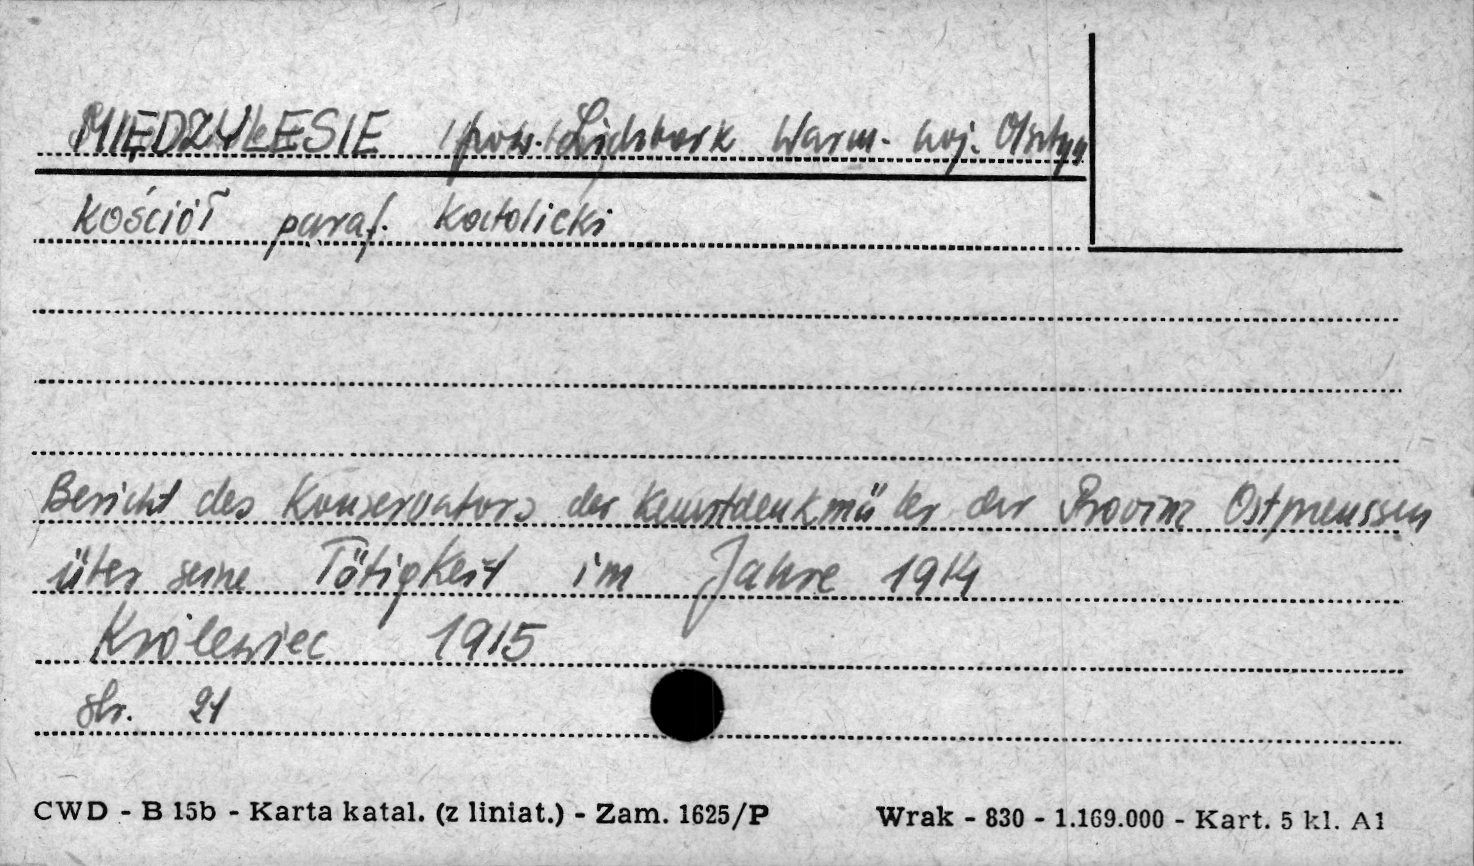 MIĘDZYLESIE pow. Lidzbark Warm. woj. Olsztyn
Kościół paraf. katolicki
Bericht des Konservators der Kunstdenkmäler der Provinz Ostpreussen
über seine Tätigkeit im Jahre 1914
Królewiec 1915
str. 21
CWD - B 15b - Karta katal. (z liniat.) - Zam. 1625/P Wrak - 830 - 1.169.000 - Kart. 5 kl. A1